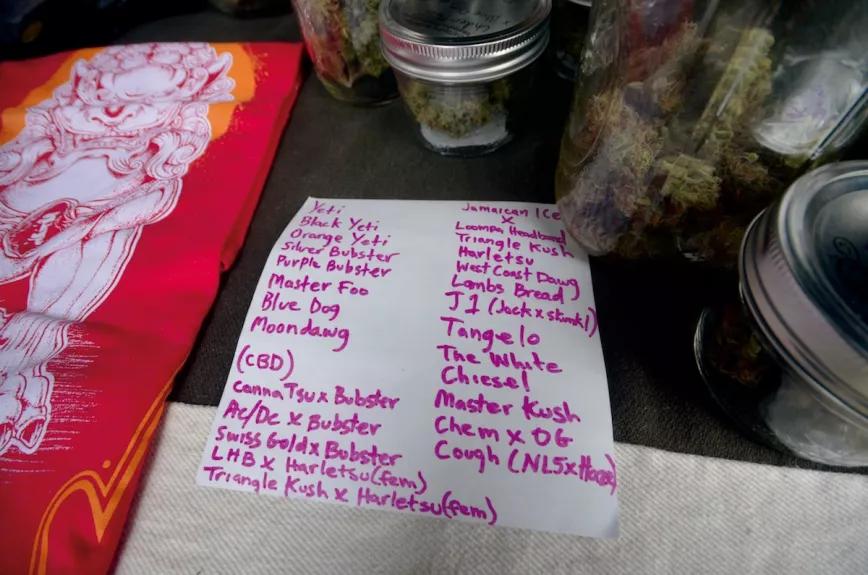 Yeti
Black Yeti
Orange Yeti
Silver Bubster
Purple Bubster
Master Foo
Blue Dog
Moondawg
(CBD)
Canna Tsu x Bubster
Ac/Dc x Bubster
Swiss Gold x Bubster
LHB x Harletsu (fem)
Triangle Kush x Harletsu (fem)
Jamaican Ice
x
Loompa Headband
Triangle Kush
Harletsu
West Coast Dawg
Lambs Bread
J1 (Jack x skunk1)
Tangelo
The White
Chiesel
Master Kush
Chem x OG
Cough (NL5xHaze)